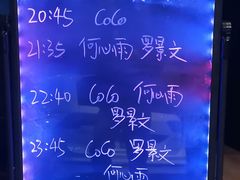 20:45 CoCo
21:35 何心雨 罗景文
22:40 CoCo 何心雨
罗景文
23:45 CoCo 罗景文
何心雨